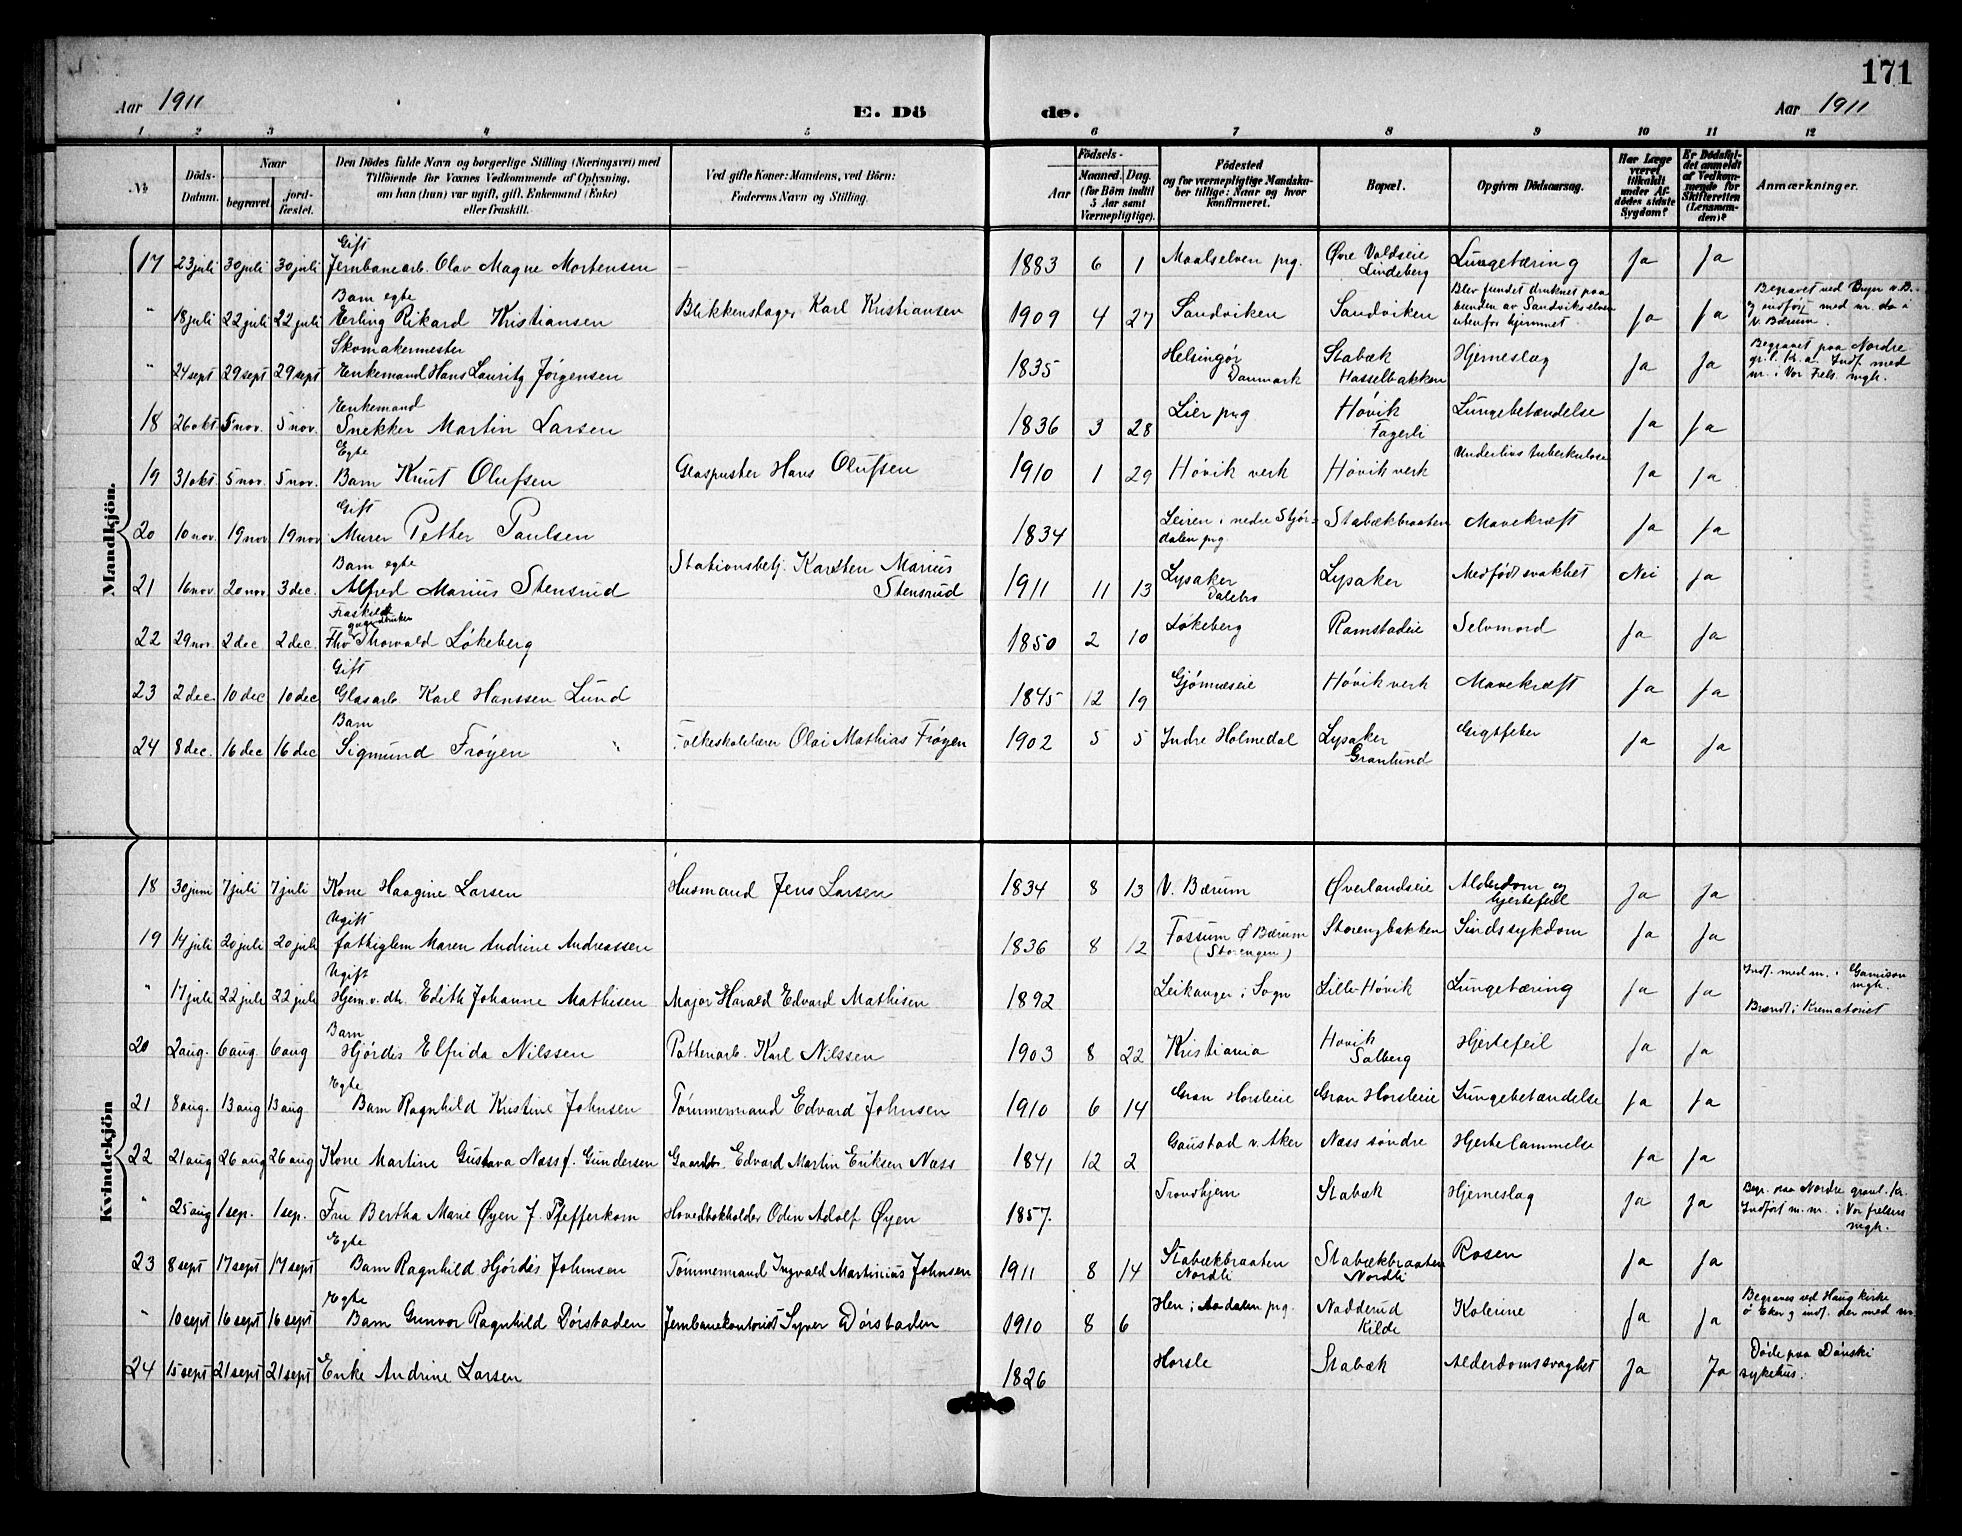 171
Aar 1911 E. Dö de. Aar 1911
1 2 3 4 5 6 7 8 9 10 11 12
No. Döds-Datum. Naar begravet. jordfæstet. Den Dödes fulde Navn og borgerlige Stilling (Næringsvei) med Tilföiende for Voxnes Vedkommende af Oplysning, om han (hun) var ugift, gift, Enkemand (Enke) eller fraskilt. Ved gifte Koner: Mandens, ved Börn: Faderens Navn og Stilling. Aar Födsels- Maaned. Dag. (for Börn indtil 5 Aar samt Værnepligtige). Födested og for værnepligtige Mandskaber tillige: Naar og hvor konfirmeret. Bopæl. Opgiven Dödsaarsag. Har Læge været tilkaldt under Afdödes sidste Sygdom? Er Dödsfaldet anmeldt af Vedkommende for Skifteretten (Lensmanden)? Anmærkninger.
Mandkjön.
17 23 juli 30 juli 30 juli Gift Jernbanearb. Olav Magne Mortensen — 1883 6 1 Maalselven prg. Øvre Voldseie Lindeberg Lungetæring Ja Ja
" 18 juli 22 juli 22 juli Barn egte Erling Rikard Kristiansen Blikkenslager Karl Kristiansen 1909 4 27 Sandviken Sandviken Blev fundet druknet paa bunden av Sandvikselven utenfor hjemmet. Ja Ja Begravet ved Bryn v. B. og indført med nr. da i V. Bærum.
" 24 sept 29 sept 29 sept Skomakermester Enkemand Hans Lauritz Jørgensen 1835 Helsingør Danmark Stabæk Hasselbakken Hjerneslag Ja Ja Begravet paa Nordre gr.l. K.a. Indf. med nr. i Vor Frels. mgh.
18 26 okt 5 nov. 5 nov. Enkemand Snekker Martin Larsen 1836 3 28 Lier prg Høvik Fagerli Lungebetændelse Ja Ja
19 31 okt 5 nov. 5 nov. Egte Barn Knut Olufsen Glaspuster Hans Olufsen 1910 1 29 Høvik verk Høvik verk Underlivstuberkulose Ja Ja
20 10 nov. 19 nov 19 nov Gift Murer Petter Paulsen 1834 Leiren i nedre Stjørdalen prg Stabækbraaten Mavekræft Ja Ja
21 16 nov. 20 nov 3 dec. Barn egte Alfred Marius Stensrud Stationsbetj. Karsten Marius Stensrud 1911 11 13 Lysaker Dalebo Lysaker Medfødt svakhet Nei Ja
22 29 nov. 2 dec 2 dec. Fraskilt Fhv gaardbruker Thorvald Løkeberg 1850 2 10 Løkeberg Ramstadeie Selvmord Ja Ja
23 2 dec. 10 dec 10 dec Gift Glasarb Karl Hanssen Lund 1845 12 19 Gjønneseie Høvik verk Mavekræft Ja Ja
24 8 dec. 16 dec 16 dec Barn Sigmund Frøyen " Folkeskolelærer Olai Mathias Frøyen 1902 5 5 Indre Holmedal Lysaker Granlund Gigtfeber Ja Ja
Kvindekjön
18 30 juni 7 juli 7 juli Kone Haagine Larsen Husmand Jens Larsen 1834 8 13 V. Bærum Øverlandseie Alderdom og hjertefeil Ja Ja
19 14 juli 20 juli 20 juli Ugift fattiglem Maren Andrine Andreassen 1836 8 12 Fossum Ø Bærum (Storengen) Storengbakken Sindssykdom Ja Ja
" 17 juli 22 juli 22 juli Ugift Hjem.v. dtr. Edith Johanne Mathisen Major Harald Edvard Mathisen 1892 Leikanger i Sogn Lille-Høvik Lungetæring Ja Ja Indf. med nr. i Garnison mgh. Brændt i Krematoriet
20 2 aug. 6 aug 6 aug Barn Hjørdis Elfrida Nilssen Pottemarb. Karl Nilssen 1903 8 22 Kristiania Høvik Solberg Hjertefeil Ja Ja
21 8 aug. 13 aug 13 aug. Egte Barn Ragnhild Kristine Johnsen Tømmermand Edvard Johnsen 1910 6 14 Gran Horsleie Gran Horsleie Lungebetændelse Ja Ja
22 21 aug 26 aug 26 aug Kone Martine Gustava Næss f. Gundersen Gaardbr. Edvard Martin Eriksen Næss 1841 12 2 Gaustad v. Aker Næss søndre Hjertelammelse Ja Ja
" 25 aug 1 sep. 1 sep. Fru Bertha Marie Øyen f. Pfefferkorn Hovedbokholder Odin Adolf Øyen 1857. Trondhjem Stabæk Hjerneslag Ja Ja Begr. paa Nordre gravl. Kr. Indført m. nr. i Vor frelsers mgh.
23 8 sept 17 sept 17 sept Egte Barn Ragnhild Hjørdis Johnsen Tømmermand Ingvald Martinius Johnsen 1911 8 14 Stabækbraaten Nordli Stabækbraaten Nordli Rosen Ja Ja
" 10 sept 16 sept 16 sept Egte Barn Gunvor Ragnhild Dørstaden Jernbanekontorist Syver Dørstaden 1910 8 6 Hen i Aadalen prg. Nadderud Kilde Kolerine Ja Ja Begraves ved Haug kirke ø Eker og indf. der med nr.
24 15 sept 21 sept 21 sept Enke Andrine Larsen 1826 Horsle Stabæk Alderdomssvaghet Ja Ja Døde paa Dønski sykehus.